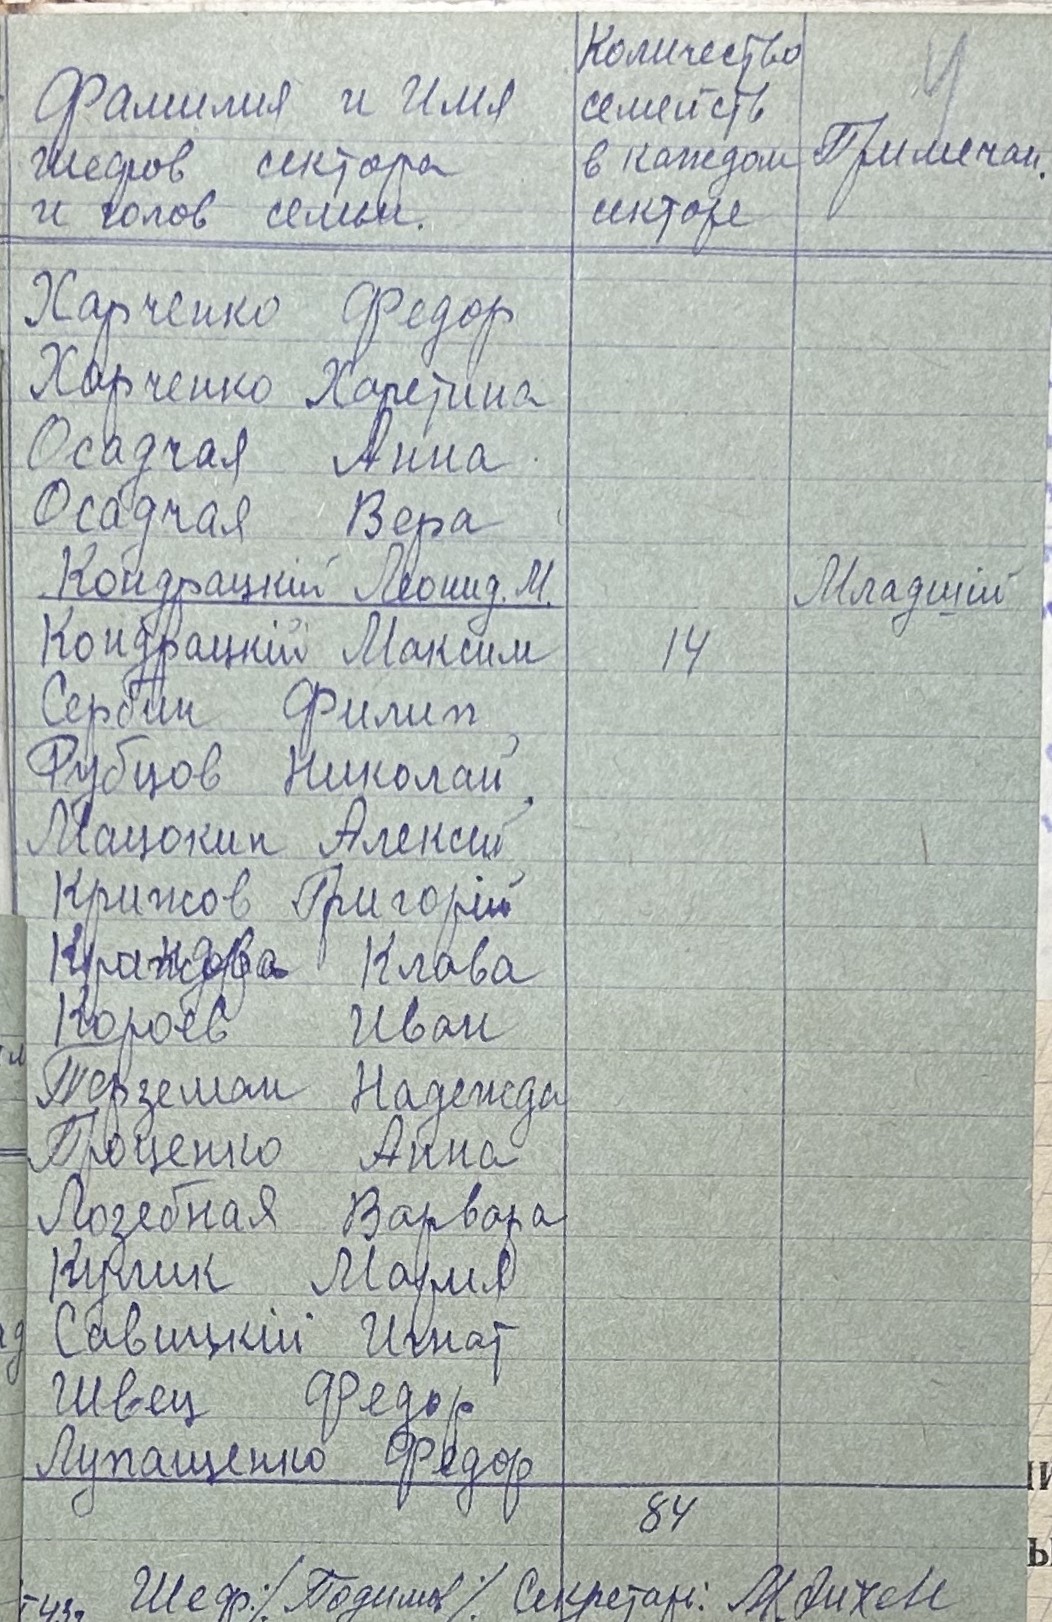 Фамилия и Имя
шефов сектора
и голов семьи.
Количество
семейств
в каждом
секторе
Примечан.
Харченко Федор
Харченко Харетина
Осадчая Анна
Осадчая Вера
Кондрацкій Леонид. М. Младшій
Кондрацкій Максим 14
Сербин Филип
Рубцов Николай
Мацокин Алексій
Крижов Григорій
Клава
Короев Иван
Терземан Надежда
Проценко Анна
Лозебная Варвара
Кулик Мария
Савицкій Игнат
Швец Федор
Лупащенко Федор
84
Шеф: Секретарь: